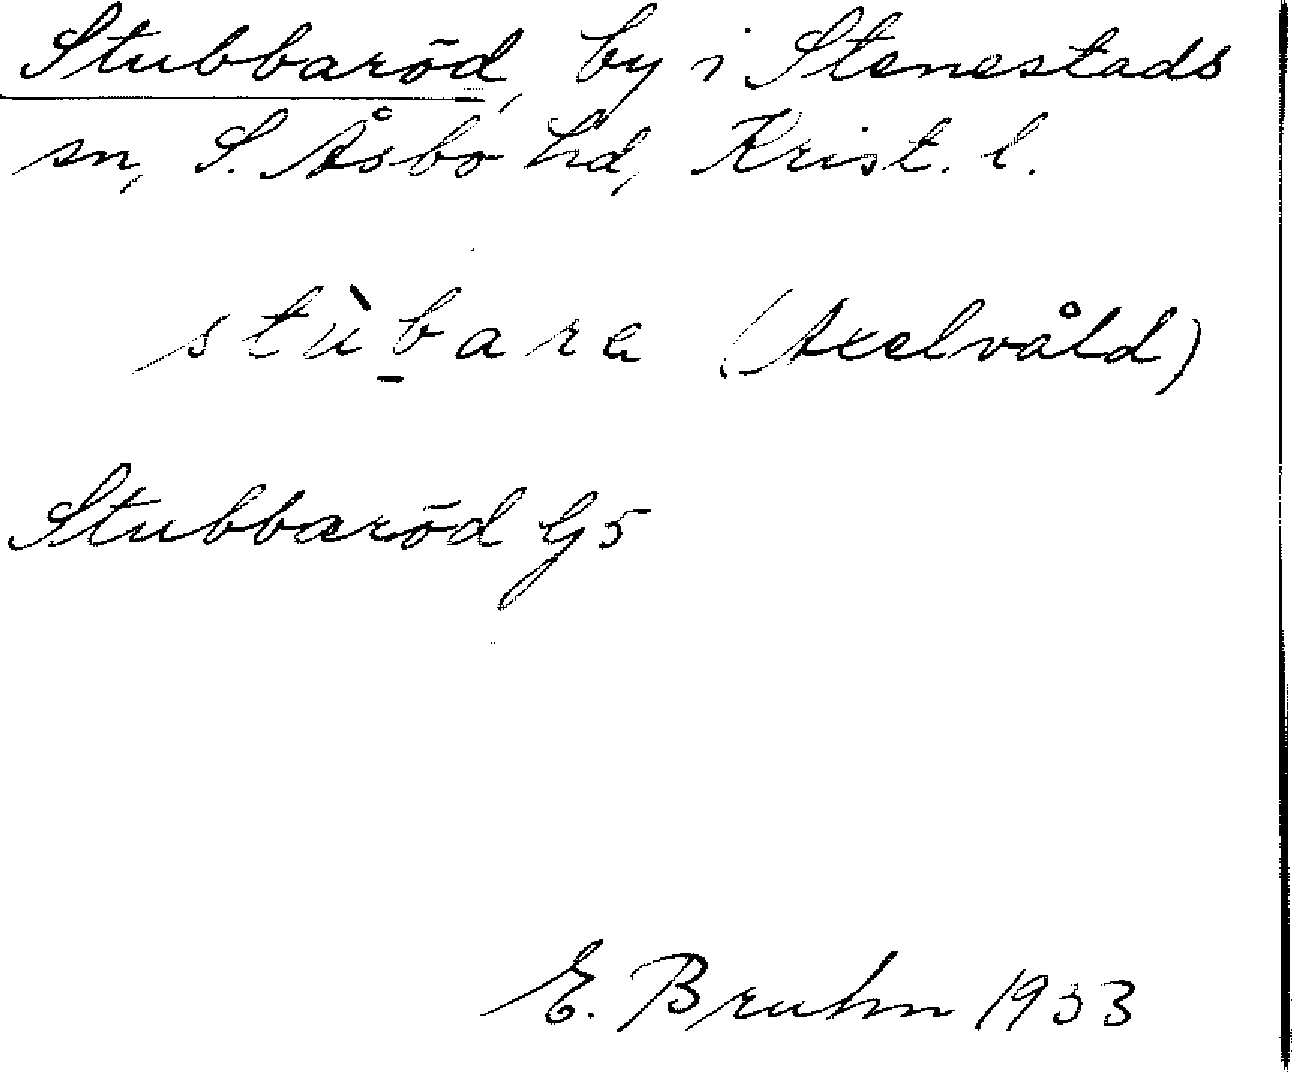 Stubbaröd, by i Stenestads
sn, S. Åsbo hd, Krist. l.
stùḇara (Axelvåld)
Stubbaröd G5
E. Bruhn 1933